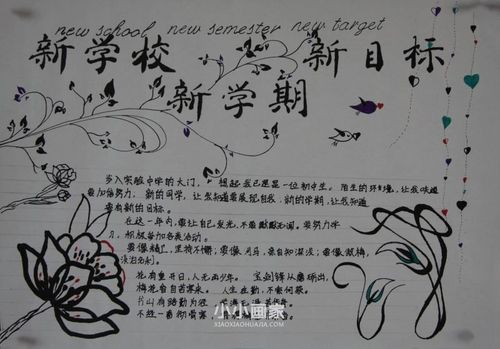 new school new semester new target
新学校 新目标
新学期
步入实验中学的大门,想起我已是一位初中生。陌生的环境,让我味道
要加倍努力,新的同学,让我知道要展现自我,新的学期,让我知道
要有新的目标。
在这一年内,要让自己发光,不要默默无闻,要努力学
习,积极参加各类活动。
花有重开日,人无再少年。宝剑锋从磨砺出,
梅花香自苦寒来。人生在勤,不索何获。
书山有路勤为径
不经一番彻骨寒
小小画家
XIAOXIAOHUAJIA.COM